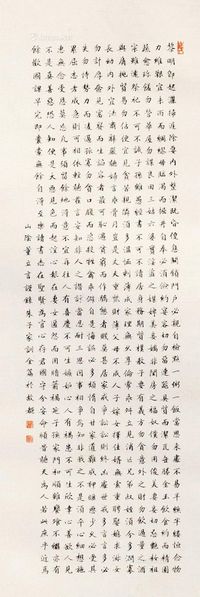 黎明即起灑掃庭除要內外整潔既昏便息關鎖門戶必親自檢點一粥一飯當思來處不易半絲半縷恒念物
力維艱宜未雨而綢繆毋臨渴而掘井自奉必須儉約宴客切勿留連器具質而潔瓦缶勝金玉飲食約而精園
蔬愈珍饈勿營華屋勿謀良田三姑六婆實淫盜之媒婢美妾嬌非閨房之福奴僕勿用俊美妻妾切忌艷妝祖
宗雖遠祭祀不可不誠子孫雖愚經書不可不讀居身務期質樸教子要有義方勿貪意外之財勿飲過量之酒
與肩挑貿易毋佔便宜見貧苦親鄰須加溫恤刻薄成家理無久享倫常乖舛立見消亡兄弟叔侄須分多潤寡
長幼內外宜法肅辭嚴聽婦言乖骨肉豈是丈夫重貲財薄父母不成人子嫁女擇佳婿毋索重聘娶媳求淑女
勿計厚奩見富貴而生諂容者最可恥遇貧窮而作驕態者賤莫甚居家戒爭訟訟則終凶處世戒多言言多必
失勿恃勢力而凌逼孤寡毋貪口腹而恣殺牲禽乖僻自是悔誤必多頹惰自甘家道難成狎昵惡少久必受其
累屈志老成急則可相依輕聽發言安知非人之譖訴當忍耐三思因事相爭焉知非我之不是須平心暗想施
惠無念受恩莫忘凡事當留餘地得意不宜再往人有喜慶不可生妒忌心人有禍患不可生喜幸心善欲人見
不是真善惡恐人知便是大惡見色而起淫心報在妻女匿怨而用暗箭禍延子孫家門和順雖饔飧不繼亦有
餘歡國課早完即囊橐無餘自得至樂讀書志在聖賢為官心存君國守分安命順時聽天為人若此庶乎近焉
山陰童謹錄朱子家訓全篇於